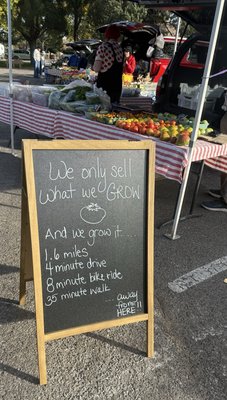 We only sell
what we GROW
And we grow it...
1.6 miles
4 minute drive
8 minute bike ride
35 minute walk
away
from
HERE